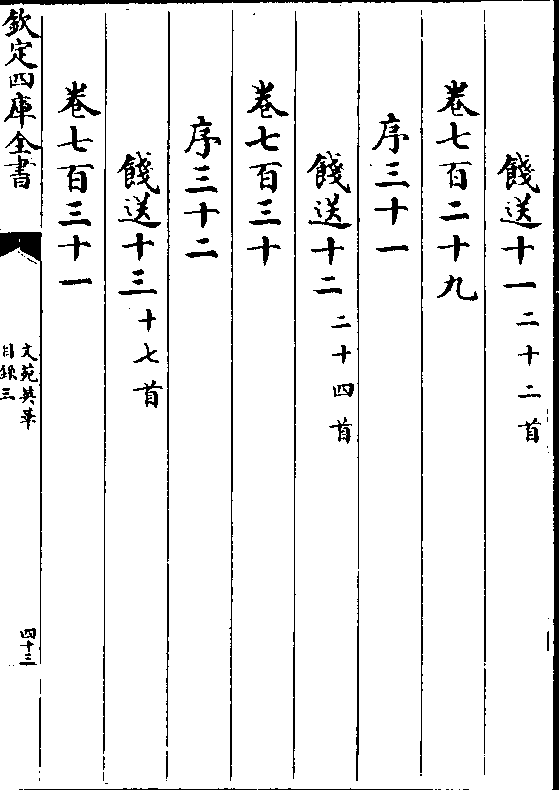 餞送十一二十二首
卷七百二十九
序三十一
餞送十二二十四首
卷七百三十
序三十二
餞送十三十七首
卷七百三十一
欽定四庫全書
文苑英華
目錄三
四十三